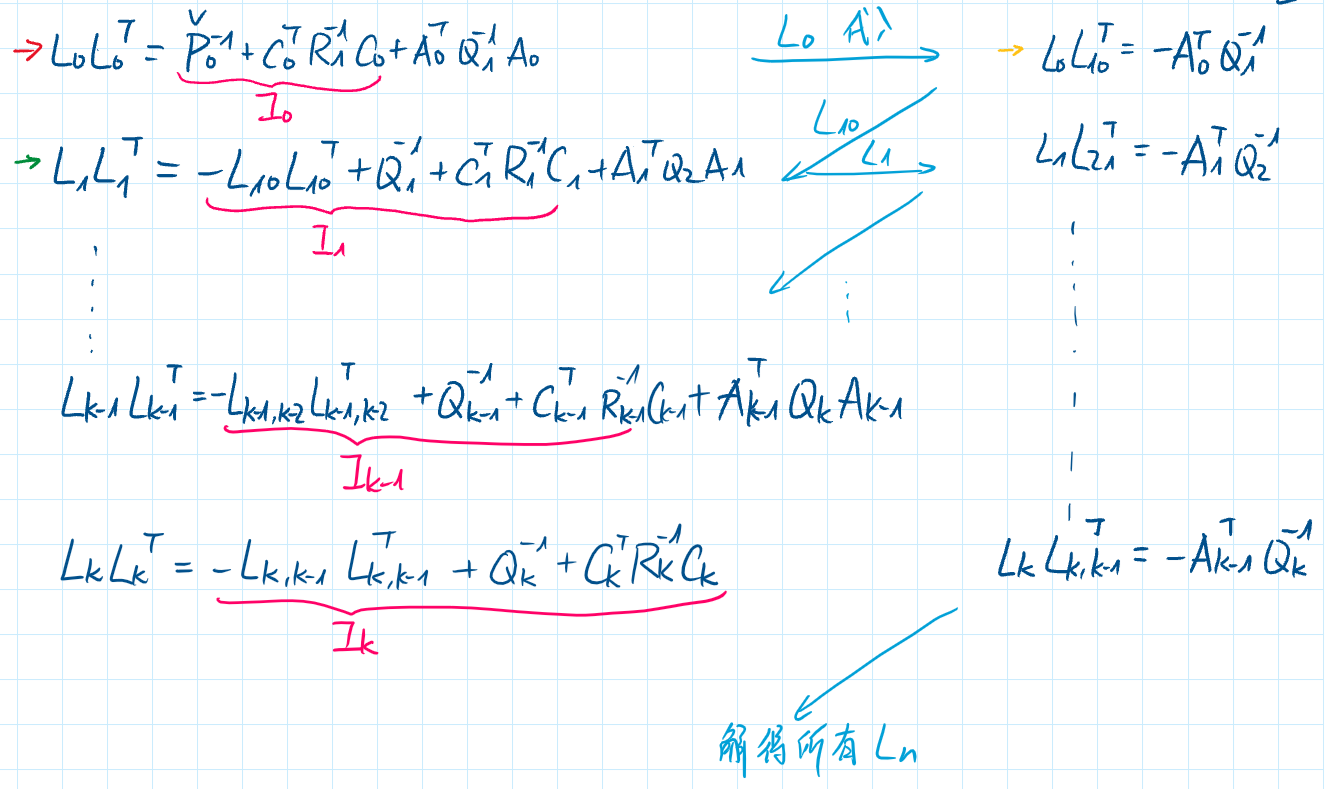 → L₀L₀ᵀ = P̌₀⁻¹ + C₀ᵀR₁⁻¹C₀ + A₀ᵀQ₁⁻¹A₀
I₀
L₀ 代入
→ L₀L₁₀ᵀ = -A₀ᵀQ₁⁻¹
→ L₁L₁ᵀ = -L₁₀L₁₀ᵀ + Q₁⁻¹ + C₁ᵀR₁⁻¹C₁ + A₁ᵀQ₂A₁
I₁
L₁₀
L₁
L₁L₂₁ᵀ = -A₁ᵀQ₂⁻¹
Lₖ₋₁Lₖ₋₁ᵀ = -Lₖ₋₁,ₖ₋₂Lₖ₋₁,ₖ₋₂ᵀ + Qₖ₋₁⁻¹ + Cₖ₋₁ᵀRₖ₋₁⁻¹Cₖ₋₁ + Aₖ₋₁ᵀQₖAₖ₋₁
Iₖ₋₁
LₖLₖᵀ = -Lₖ,ₖ₋₁Lₖ,ₖ₋₁ᵀ + Qₖ⁻¹ + CₖᵀRₖ⁻¹Cₖ
Iₖ
LₖLₖ,ₖ₋₁ᵀ = -Aₖ₋₁ᵀQₖ⁻¹
解得所有 Lₙ